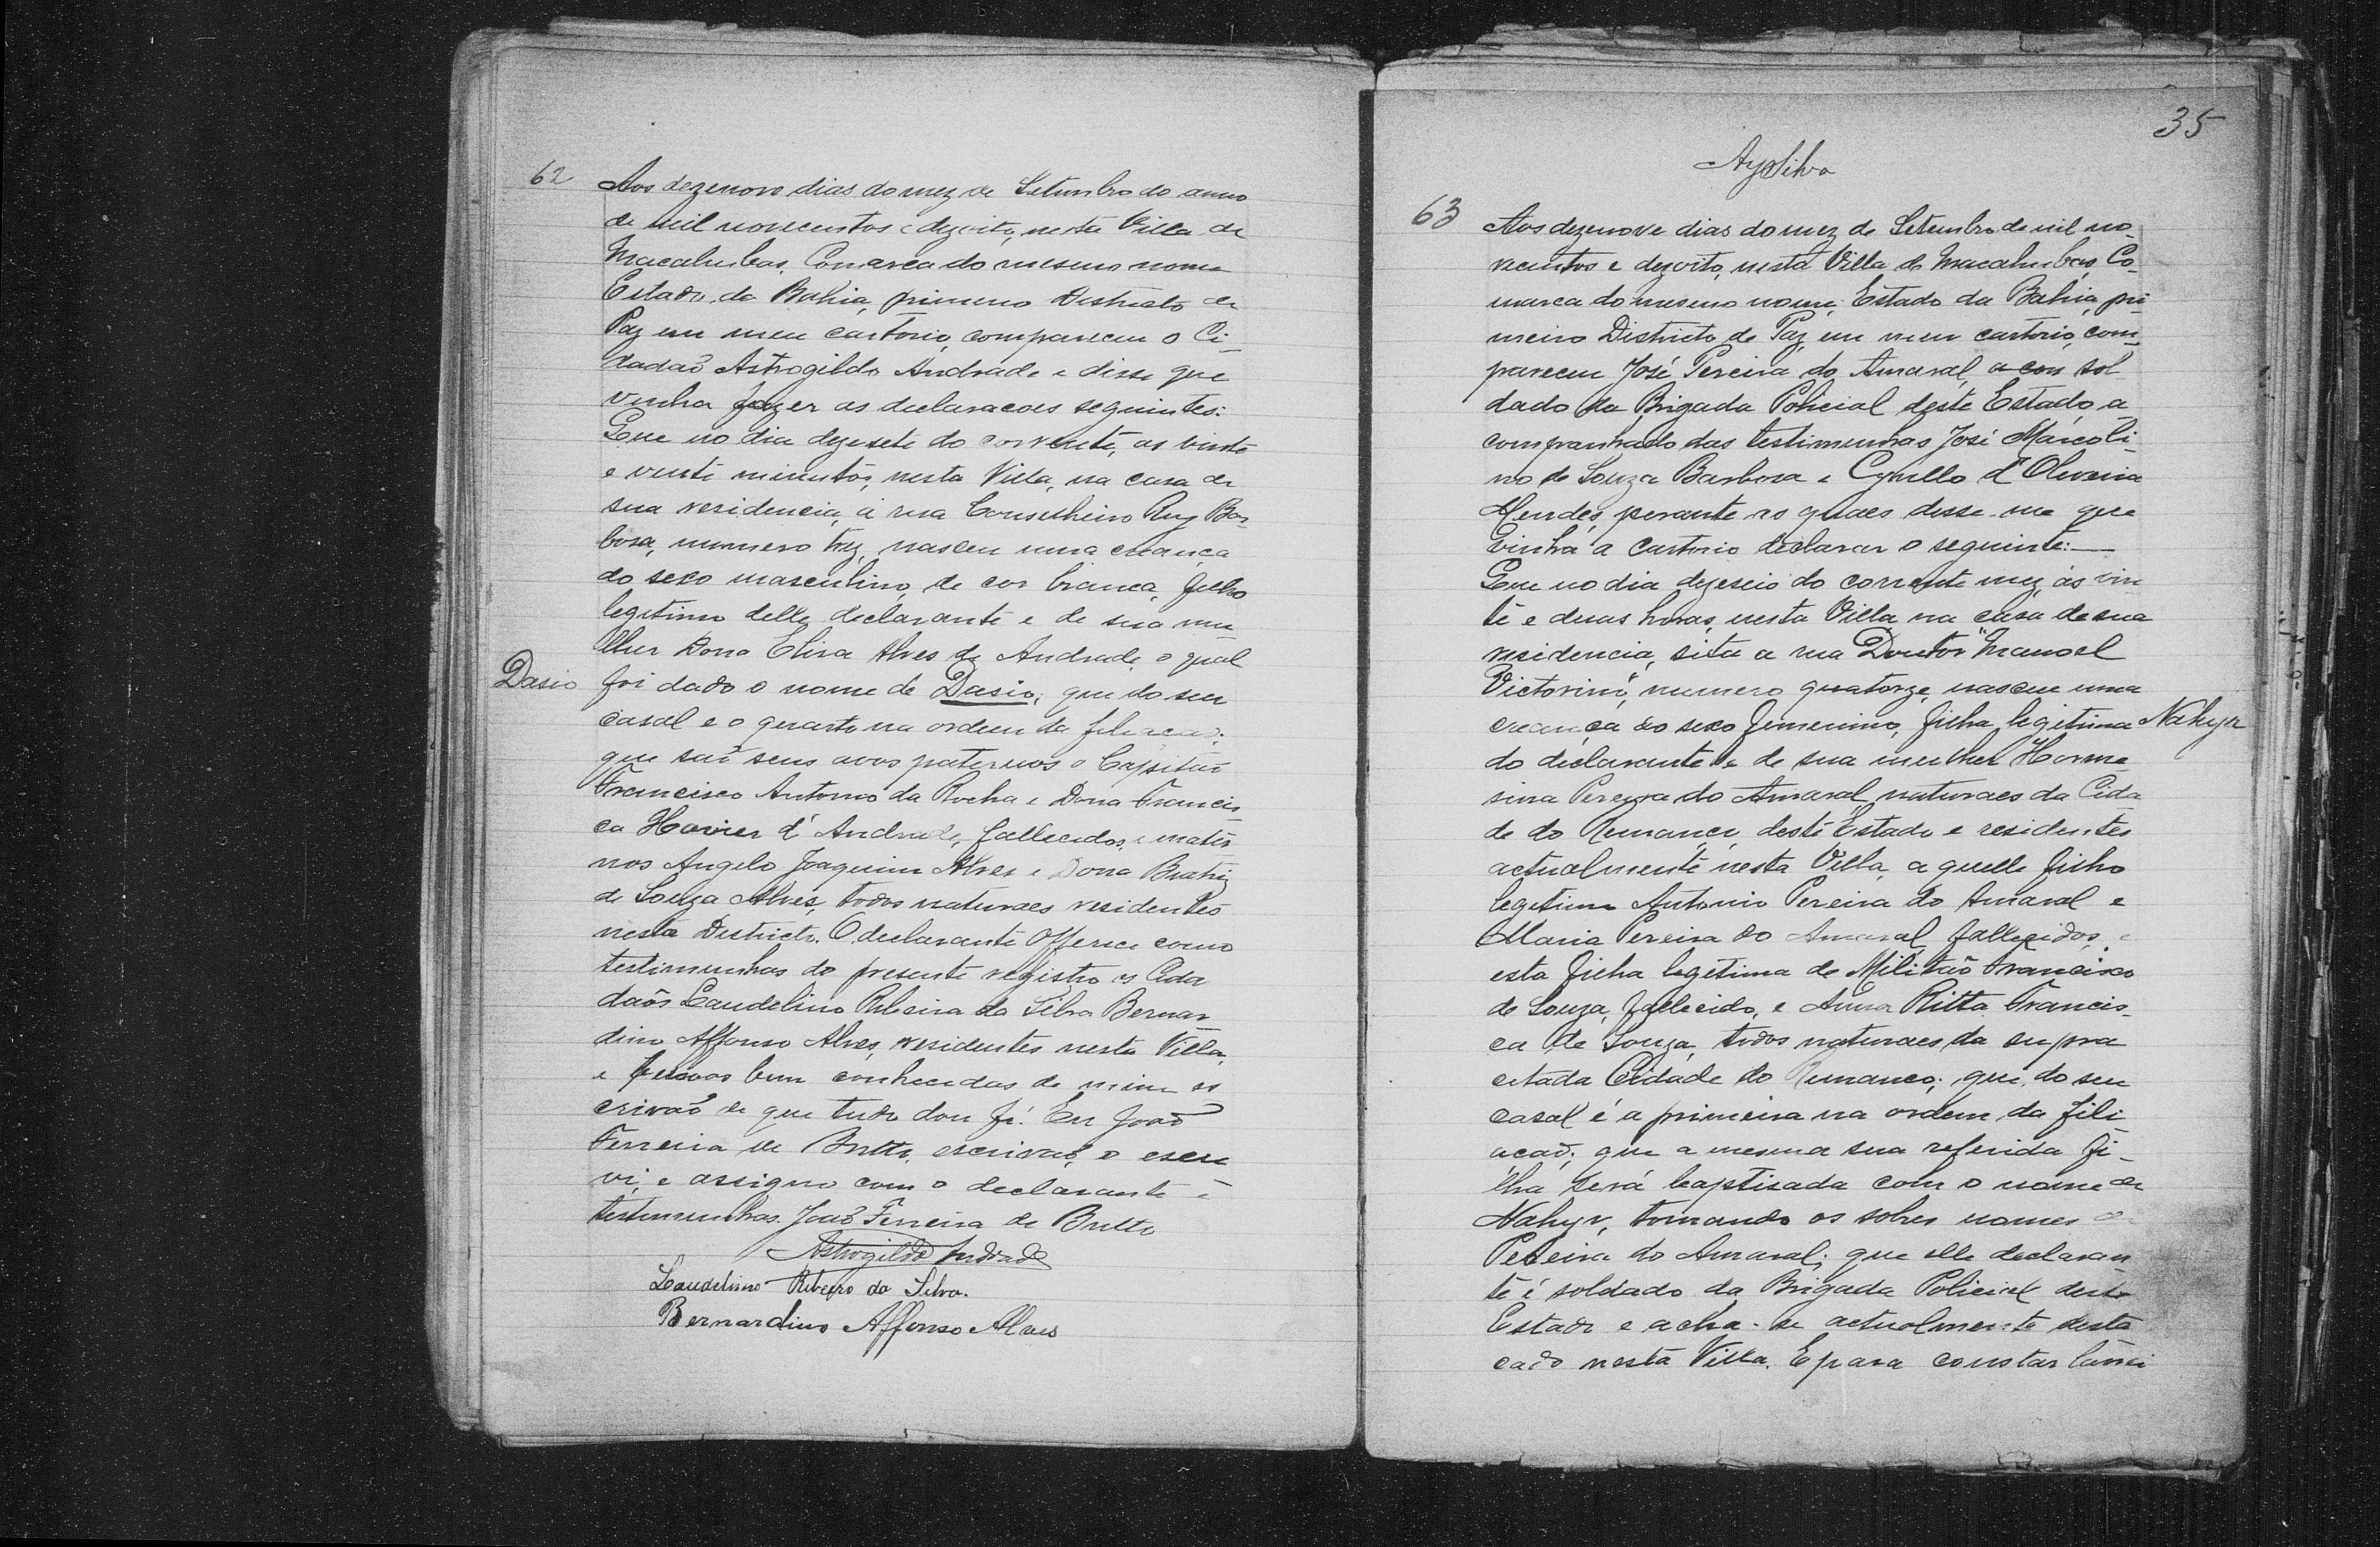 62 Aos dezenove dias do mez de Setembro do anno
de mil novecentos e dezoito, nesta Villa de
Macahubas, Comarca do mesmo nome
Estado da Bahia, primeiro Districto de
Paz em meu cartorio, compareceu o Ci-
dadaõ Astrogildo Andrade e disse que
vinha fazer as declaracoes seguintes:
Que no dia dezesete do corrente, as vinte
e vinte minutos, nesta Villa, na casa de
sua residencia, á rua Conselheiro Ruy Bar
bosa, numero trez, nasceu uma creança
do sexo masculino, de cor branca, filho
legitimo delle declarante e de sua mu
lher Dona Elisa Alves de Andrade, o qual
Dasio foi dado o nome de Dasio; que do seu
casal e o quarto na ordem da filiacaõ;
que saõ seus avos paternos o Capitaõ
Francisco Antonio da Rocha e Dona Francis
ca Xavier d'Andrade, fallecidos, e mater
nos Angelo Joaquim Alves e Dona Beatriz
de Souza Alves, todos naturaes residentes
nesta Districto. O declarante offerece como
testimunhas do presente registro os Cida
daõs Laudelino Ribeiro da Silva Bernar
dino Affonso Alves, residentes nesta Villa,
e pessoas bem conhecidas de mim es
crivaõ de que tudo dou fé. Eu Joaõ
Ferreira de Britto, escrivaõ, o escre
vi, e assigno com o declarante e
testimunhas. Joaõ Ferreira de Britto
Astrogildo Andrade
Laudelino Ribeiro da Silva.
Bernardino Affonso Alves
35
63 Aos dezenove dias do mez de Setembro de mil no-
vecentos e dezoito, nesta Villa de Macahubas, Co-
marca do mesmo nome, Estado da Bahia, pri
meiro Districto de Paz, em meu cartorio, com-
pareceu José Pereira do Amaral, a com sol
dado da Brigada Policial deste Estado, a
companhado das testimunhas José Marcoli-
no de Souza Barbosa e Cyrillo d'Oliveira
Mendes, perante as quaes disse-me que
vinha a cartorio declarar o seguinte:—
Que no dia dezeseis do corrente mez, ás vin
te e duas horas, nesta Villa, na casa de sua
residencia, sita a rua Doutor "Manoel
Victorino", numero quatorze, nasceu uma
creança do sexo femenino, filha legitima Nahyr
do declarante e de sua mulher Horme
sina Pereira do Amaral, naturaes da Cida
de do Remanço, deste Estado e residentes
actualmente nesta Villa, aquelle filho
legitimo Antonio Pereira do Amaral e
Maria Pereira do Amaral, fallecidos, e
esta filha legitima de Militaõ Francisco
de Souza, fallecido, e Anna Ritta Francis-
ca de Souza, todos naturaes da supra
citada Cidade do Remanço; que do seu
casal é a primeira na ordem da fili-
acaõ; que a mesma sua referida fi-
lha será baptisada com o nome de
Nahyr, tomando os sobres nomes de
Pereira do Amaral; que elle declaran
te é soldado da Brigada Policial deste
Estado e acha-se actualmente desta
cado nesta Villa. E para constar lavrei